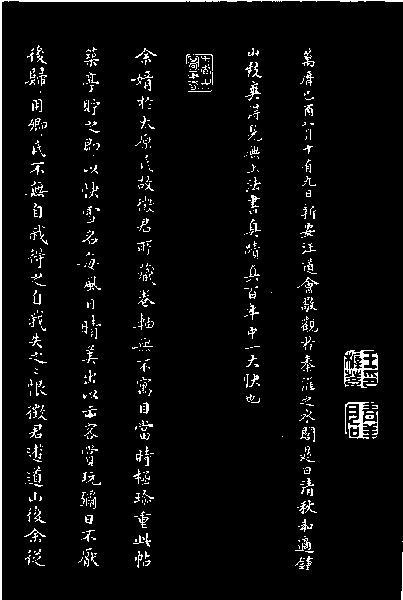 萬曆己酉八月十有九日新安江道會敬觀於秦淮之水閣是日清秋和適鍾
山致爽得見無上法書真蹟真百年中一大快也
余婿於太原氏故徵君所藏卷軸無不寓目當時極珍重此帖
築亭貯之即以快雪名每風日晴美出以示客賞玩彌日不厭
後歸用卿氏不無自我得之自我失之之恨徵君遊道山後余從